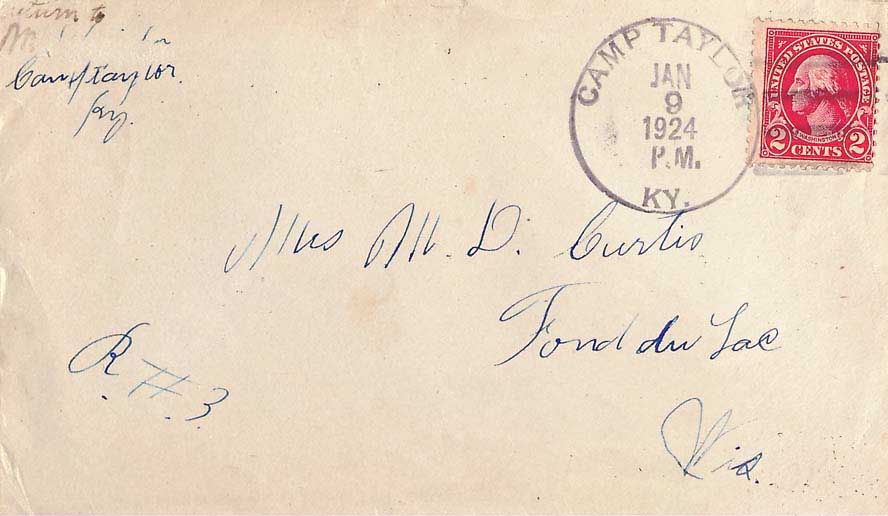 Return to
Camp Taylor.
Ky.
CAMP TAYLOR
JAN
9
1924
P.M.
KY.
UNITED STATES POSTAGE
WASHINGTON
2 CENTS 2
Mrs M. D. Curtis
Fond du Lac
R. #.3.
Wis.